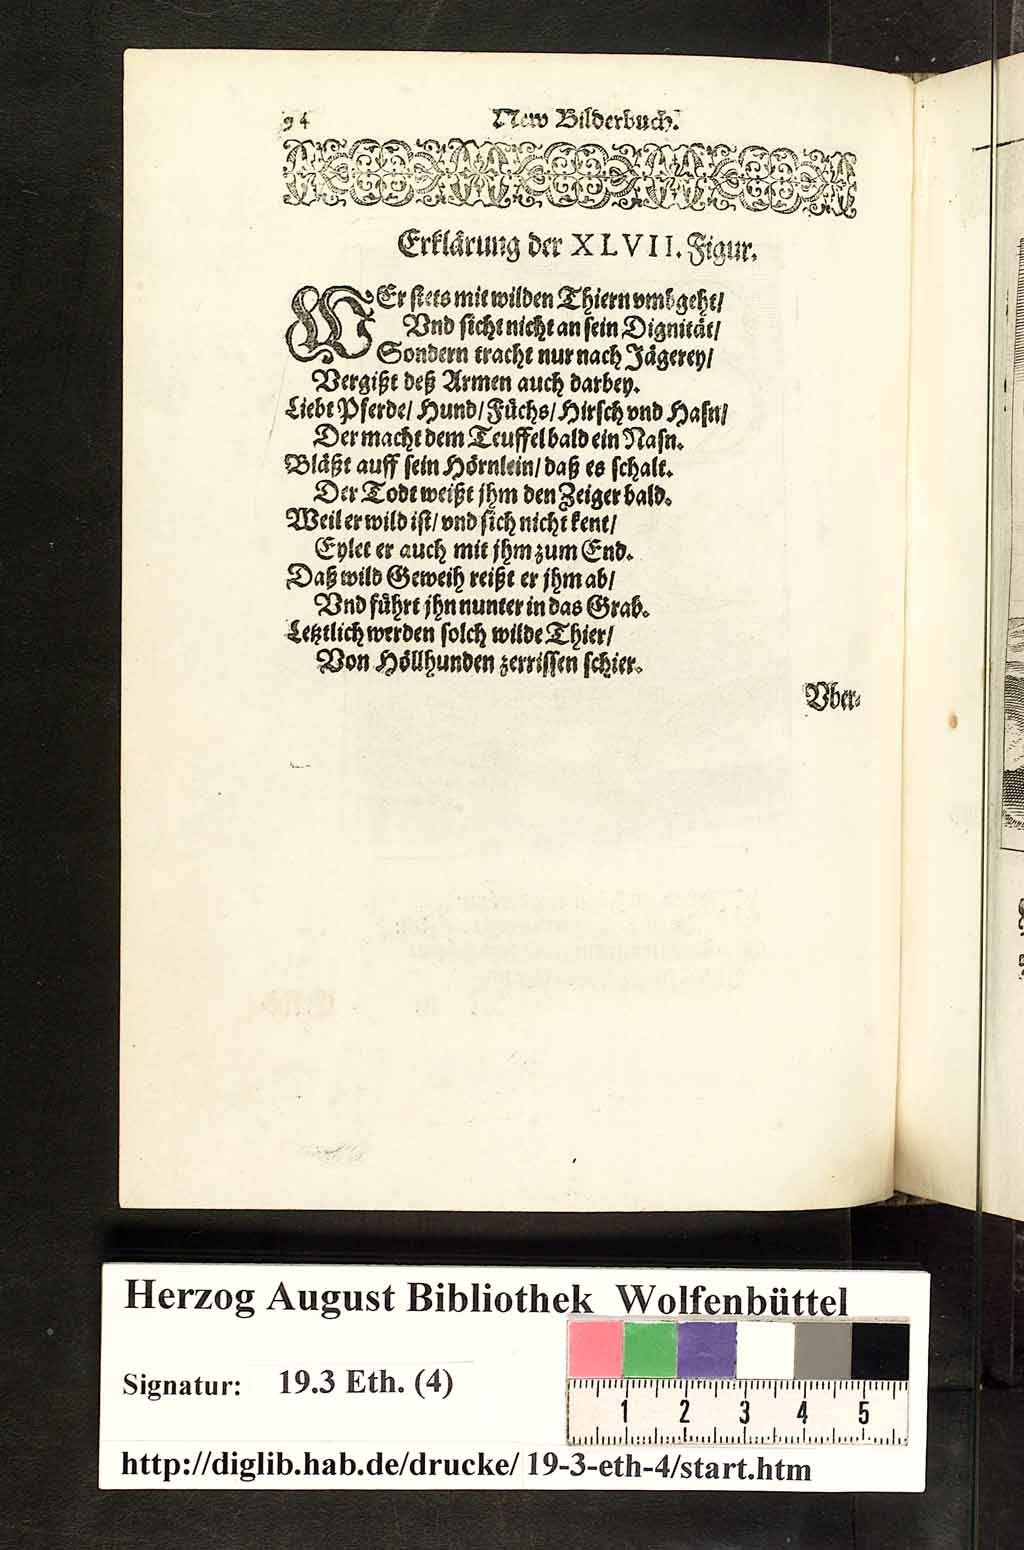 94 New Bilderbuch.
Erklärung der XLVII. Figur.
WEr stets mit wilden Thiern vmbgeht/
Vnd sicht nicht an sein Dignität/
Sondern tracht nur nach Jägerey/
Vergißt deß Armen auch darbey.
Liebt Pferde/ Hund/ Füchs/ Hirsch vnd Hasn/
Der macht dem Teuffel bald ein Nasn.
Bläßt auff sein Hörnlein/ daß es schalt.
Der Todt weißt jhm den Zeiger bald.
Weil er wild ist/ vnd sich nicht kent/
Eylet er auch mit jhm zum End.
Daß wild Geweih reißt er jhm ab/
Vnd führt jhn nunter in das Grab.
Letztlich werden solch wilde Thier/
Von Höllhunden zerrissen schier.
Vber-
Herzog August Bibliothek Wolfenbüttel
Signatur: 19.3 Eth. (4)
1 2 3 4 5
http://diglib.hab.de/drucke/ 19-3-eth-4/start.htm